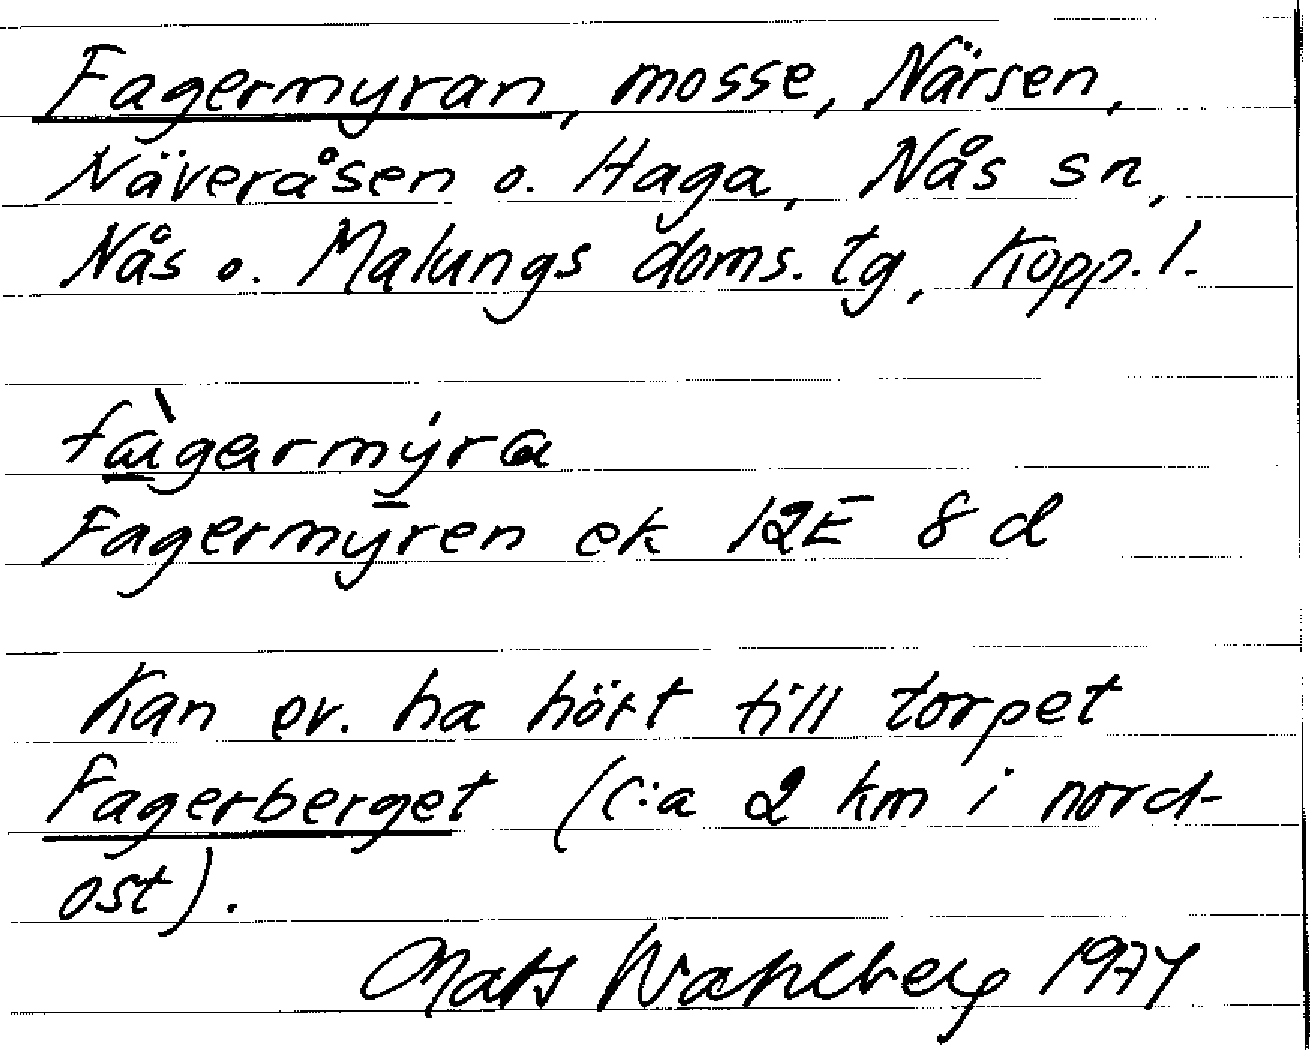 Fagermyran, mosse, Närsen,
Näveråsen o. Haga, Nås sn,
Nås o. Malungs doms. tg, Kopp. l.
fàgermýra
Fagermyren ek 12E 8d
Kan ev. ha hört till torpet
Fagerberget (c:a 2 km i nord-
ost).
Mats Wahlberg 1974